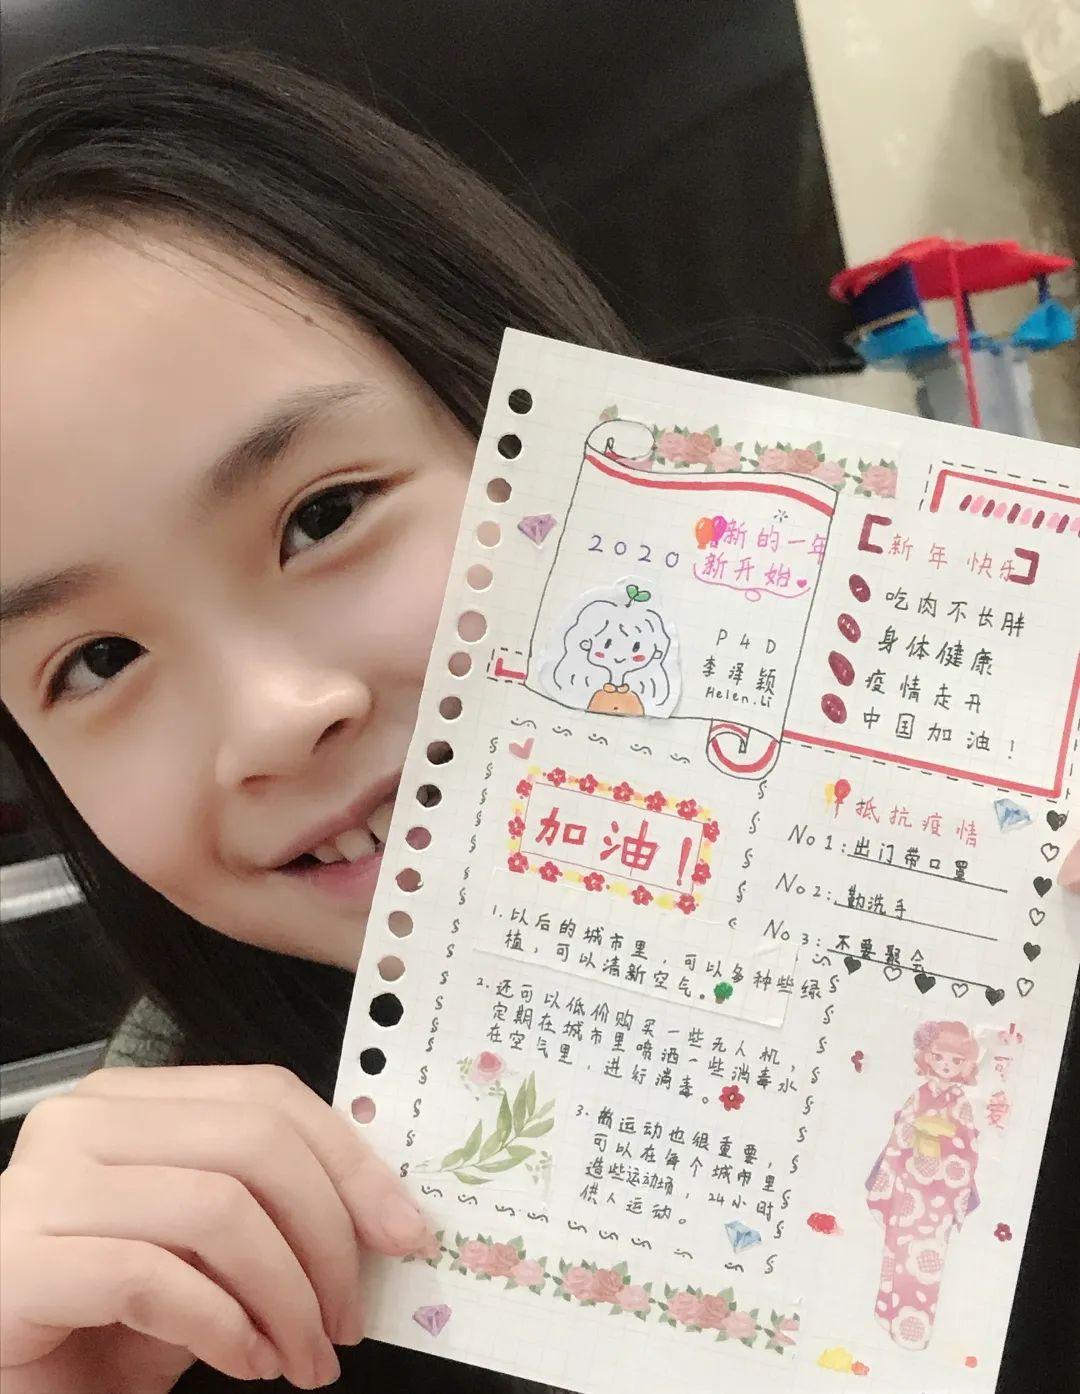 2020
新的一年
新开始
P4D
李泽颖
Helen.Li
新年快乐
吃肉不长胖
身体健康
疫情走开
中国加油！
抵抗疫情
No1：出门带口罩
No2：勤洗手
No3：不要聚会
加油！
1.以后的城市里，可以多种些绿
植，可以清新空气。
2.还可以低价购买一些无人机，
定期在城市里喷洒一些消毒水
在空气里，进行消毒。
3.做运动也很重要，
可以在每个城市里
造些运动场，24小时
供人运动。
小可爱